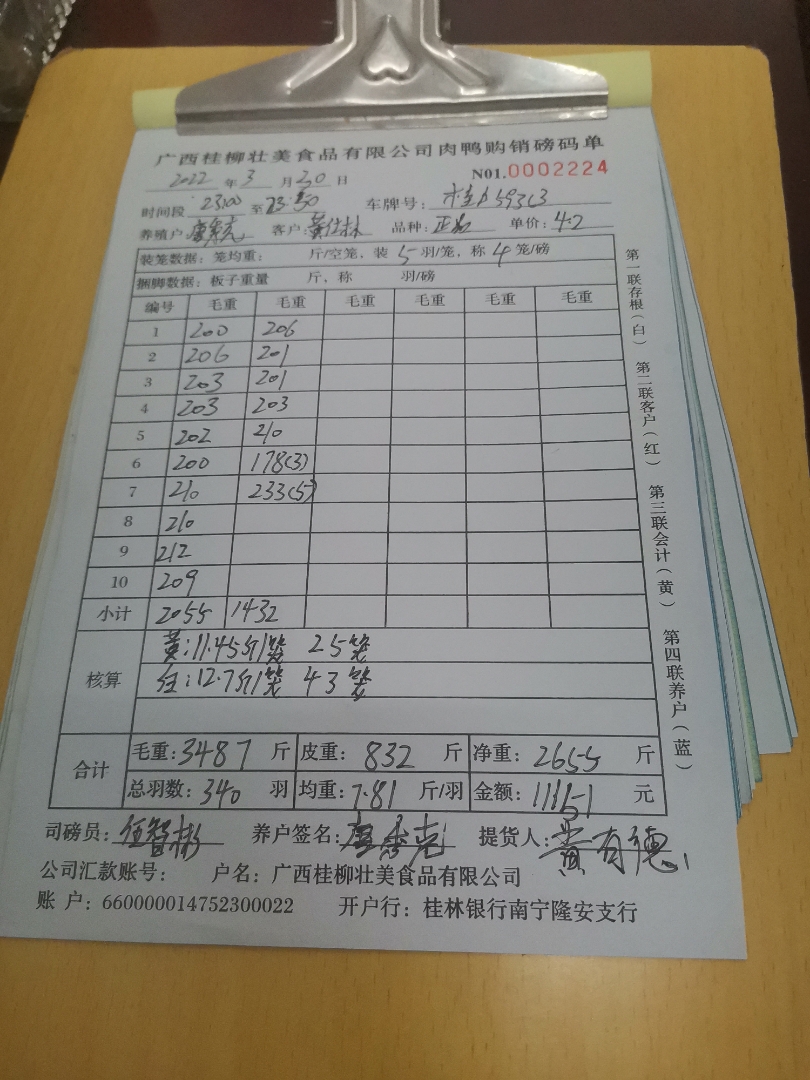 广西桂柳壮美食品有限公司肉鸭购销磅码单
2022 年 3 月 20 日 N01.0002224
时间段 23:00 至 23:50 车牌号:
养殖户: 客户: 黄仕林 品种: 单价: 4.2
装笼数据: 笼均重: 斤/空笼, 装 5 羽/笼, 称 4 笼/磅
捆脚数据: 板子重量 斤, 称 羽/磅
编号 毛重 毛重 毛重 毛重 毛重 毛重
1 200 206
2 206 201
3 203 201
4 203 203
5 202 210
6 200 178(3)
7 210 233(5)
8 210
9 212
10 209
小计 2055 1432
核算 黄:11.45斤/笼 25笼
红:12.7斤/笼 43笼
合计 毛重: 3487 斤 皮重: 832 斤 净重: 2655 斤
总羽数: 340 羽 均重: 7.81 斤/羽 金额: 11151 元
司磅员: 任智彬 养户签名: 提货人: 黄有德
公司汇款账号: 户名: 广西桂柳壮美食品有限公司
账 户: 660000014752300022 开户行: 桂林银行南宁隆安支行
第一联存根(白) 第二联客户(红) 第三联会计(黄) 第四联养户(蓝)